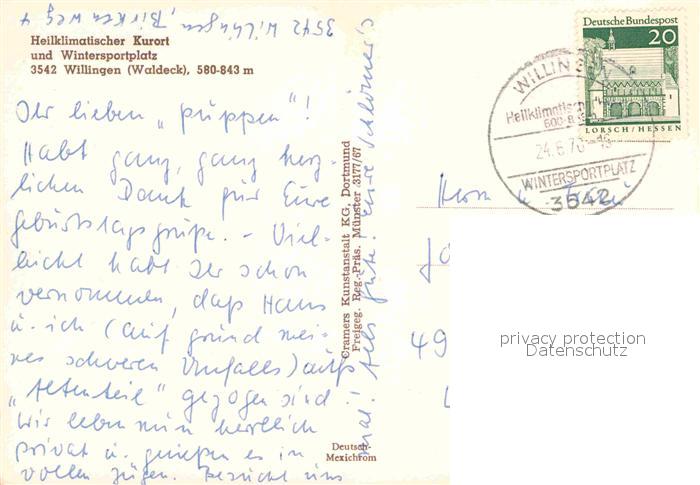 3542 Willingen, Birkenweg 4
Heilklimatischer Kurort
und Wintersportplatz
3542 Willingen (Waldeck), 580-843 m
Ihr lieben „Puppen"!
Habt ganz, ganz herz-
lichen Dank für Eure
Geburtstagsgrüße. – Viel-
leicht habt Ihr schon
vernommen, daß Hans
u. ich (auf Grund mei-
nes schweren Unfalls) aufs
„Altenteil" gezogen sind!
Wir leben nun herrlich
privat u. genießen es in
vollen Zügen. Besucht uns
mal! Alles Gute! Eure
Cramers Kunstanstalt KG, Dortmund
Freigeg. Reg.-Präs. Münster 3177/67
Deutsch-
Mexichrom
Deutsche Bundespost
20
LORSCH/HESSEN
WILLINGEN
Heilklimatisch
24.6.70
WINTERSPORTPLATZ
3542
Herrn u.
49
privacy protection
Datenschutz